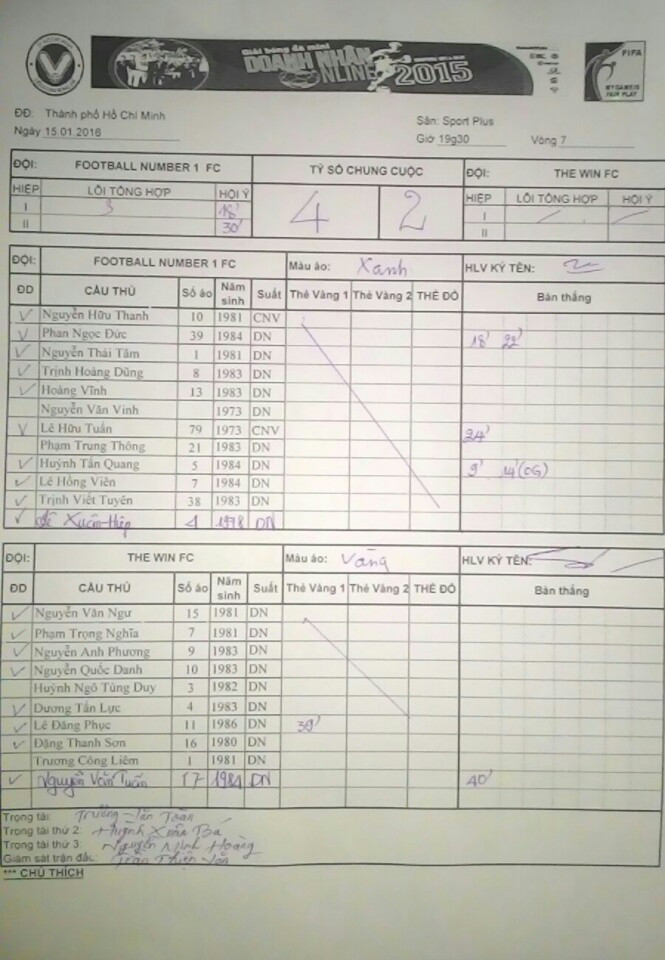 Giải bóng đá mini
DOANH NHÂN
NLINE 2015
FIFA
MY GAME IS
FAIR PLAY
ĐĐ: Thành phố Hồ Chí Minh
Ngày 15.01.2016
Sân: Sport Plus
Giờ 19g30 Vòng 7
ĐỘI: FOOTBALL NUMBER 1 FC TỶ SỐ CHUNG CUỘC ĐỘI: THE WIN FC
HIỆP LỖI TỔNG HỢP HỘI Ý 4 2 HIỆP LỖI TỔNG HỢP HỘI Ý
I 3 18' I
II 30' II
ĐỘI: FOOTBALL NUMBER 1 FC Màu áo: Xanh HLV KÝ TÊN:
ĐD CẦU THỦ Số áo Năm sinh Suất Thẻ Vàng 1 Thẻ Vàng 2 THẺ ĐỎ Bàn thắng
Nguyễn Hữu Thanh 10 1981 CNV
Phan Ngọc Đức 39 1984 DN 18' 22'
Nguyễn Thái Tâm 1 1981 DN
Trịnh Hoàng Dũng 8 1983 DN
Hoàng Vĩnh 13 1983 DN
Nguyễn Văn Vinh 1973 DN
Lê Hữu Tuấn 79 1973 CNV 24'
Phạm Trung Thông 21 1983 DN
Huỳnh Tấn Quang 5 1984 DN 9' 14' (OG)
Lê Hồng Viên 7 1984 DN
Trịnh Viết Tuyên 38 1983 DN
Xuân Hiệp 4 1978 DN
ĐỘI: THE WIN FC Màu áo: Vàng HLV KÝ TÊN:
ĐD CẦU THỦ Số áo Năm sinh Suất Thẻ Vàng 1 Thẻ Vàng 2 THẺ ĐỎ Bàn thắng
Nguyễn Văn Ngư 15 1981 DN
Phạm Trọng Nghĩa 7 1981 DN
Nguyễn Anh Phương 9 1983 DN
Nguyễn Quốc Danh 10 1983 DN
Huỳnh Ngô Tùng Duy 3 1982 DN
Dương Tấn Lực 4 1983 DN
Lê Đăng Phục 11 1986 DN 39'
Đặng Thanh Sơn 16 1980 DN
Trương Công Liêm 1 1981 DN
Nguyễn Văn Tuấn 17 1984 DN 40'
Trọng tài: Trương Tấn Toàn
Trọng tài thứ 2: Huỳnh Xuân Bá
Trọng tài thứ 3: Nguyễn Minh Hoàng
Giám sát trận đấu: Trần Thiện Văn
*** CHÚ THÍCH